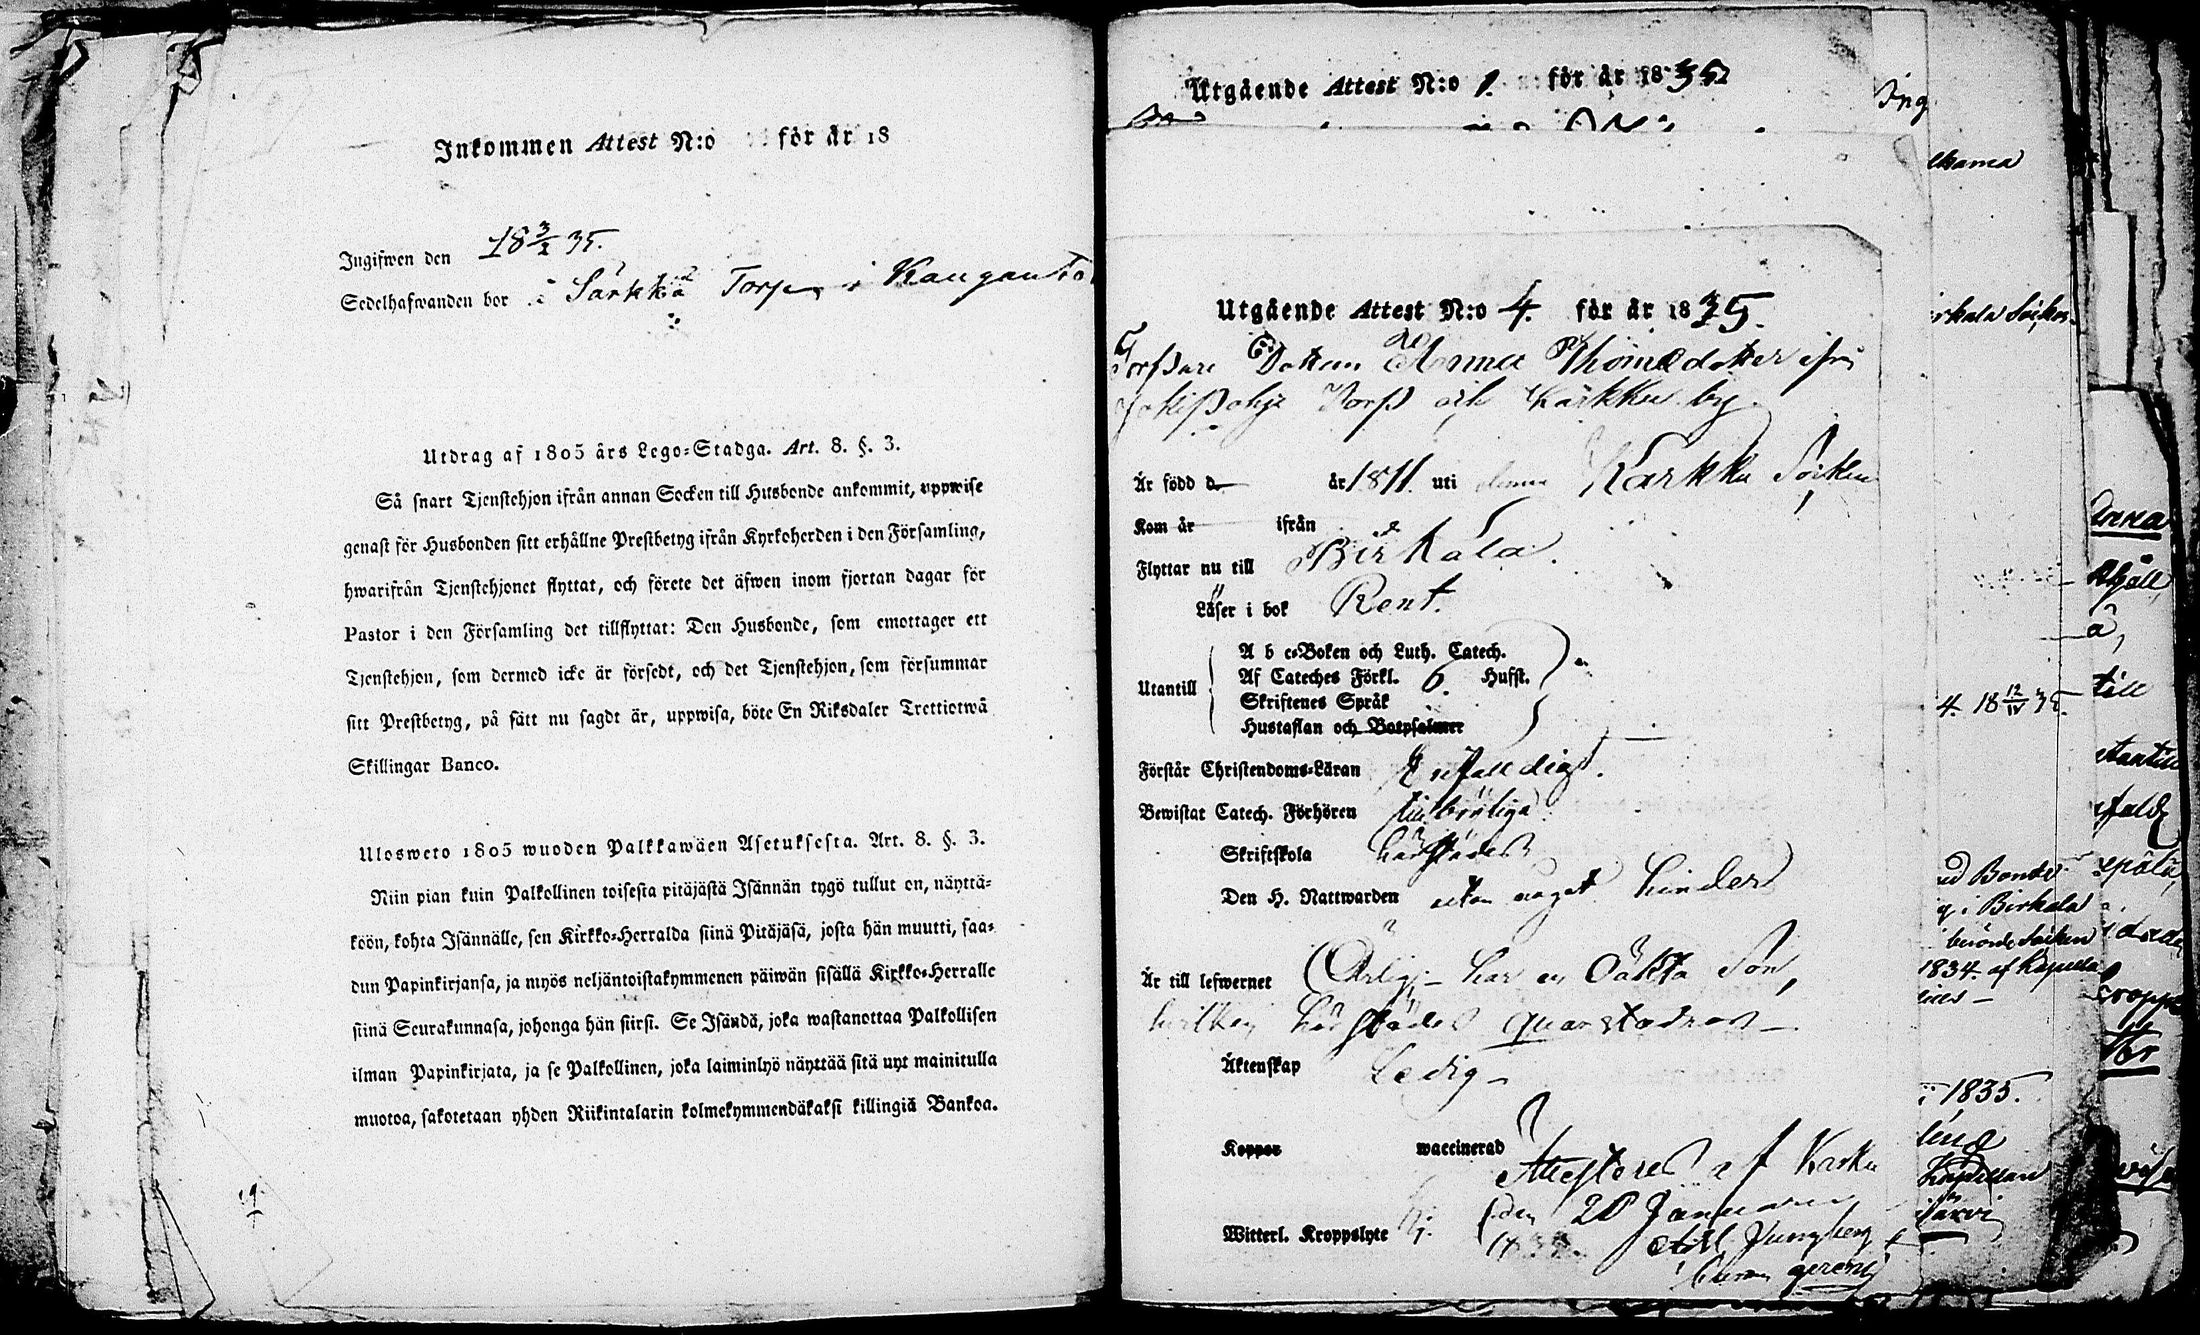 Inkommen Attest N:o för år 18
Ingifwen den 18 3/2 35.
Sedelhafwanden bor i Särkkä Torp i
Utdrag af 1805 års Lego-Stadga. Art. 8. §. 3.
Så snart Tjenstehjon ifrån annan Socken till Husbonde ankommit, uppwise
genast för Husbonden sitt erhållne Prestbetyg ifrån Kyrkoherden i den Församling,
hwarifrån Tjenstehjonet flyttat, och förete det äfwen inom fjortan dagar för
Pastor i den Församling det tillflyttat: Den Husbonde, som emottager ett
Tjenstehjon, som dermed icke är försedt, och det Tjenstehjon, som försummar
sitt Prestbetyg, på sätt nu sagdt är, uppwisa, böte En Riksdaler Trettiotwå
Skillingar Banco.
Ulosweto 1805 wuoden Palkkawäen Asetuksesta. Art. 8. §. 3.
Niin pian kuin Palkollinen toisesta pitäjästä Isännän tygö tullut on, näyttä-
köön, kohta Isännälle, sen Kirkko-Herralda siinä Pitäjäsä, josta hän muutti, saa-
dun Papinkirjansa, ja myös neljäntoistakymmenen päiwän sisällä Kirkko-Herralle
siinä Seurakunnasa, johonga hän siirsi. Se Isändä, joka wastanottaa Palkollisen
ilman Papinkirjata, ja se Palkollinen, joka laiminlyö näyttää sitä nyt mainitulla
muotoa, sakotetaan yhden Riikintalarin kolmekymmendäkaksi killingiä Bankoa.
Utgående Attest N:o 1. för år 1835
Utgående Attest N:o 4. för år 1835.
Dottern Anna Thomædotter ifrån
Torp och Karkku by.
Är född d år 1811. uti denna Karkku Socken
Kom år ifrån
Flyttar nu till Birkala.
Läser i bok Rent.
Utantill
A b c-Boken och Luth. Catech.
Af Cateches Förkl. 6. Hufst.
Skriftenes Språk
Hustaflan och Botpsalmer
Förstår Christendoms-Läran Enfalldigt.
Bewistat Catech. Förhören tillbörliga
Skriftskola härstädes
Den H. Nattwarden utan något hinder
Är till lefwernet Ärlig, har en Oäkta Son,
hvilken härstädes quarstadnar
Äktenskap Ledig
Koppor waccinerad
Attesteras af Karku
Witterl. Kroppslyte den 20 Januarii
1835.
Ljungberg
ekama
4. 18 12/IV 35.
Bonde
i Birkala
Socken
1834. af
1835.
till